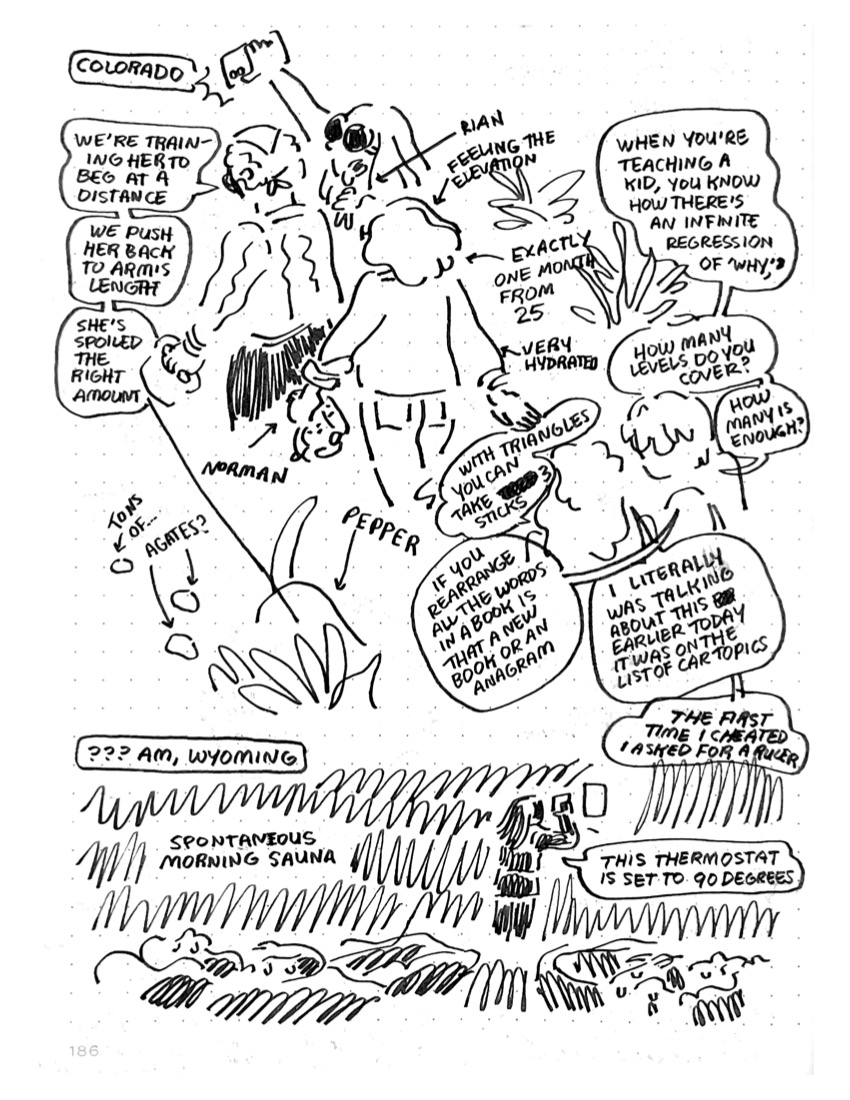 COLORADO
WE'RE TRAIN-
ING HER TO
BEG AT A
DISTANCE
WE PUSH
HER BACK
TO ARM'S
LENGTH
SHE'S
SPOILED
THE
RIGHT
AMOUNT
RIAN
FEELING THE
ELEVATION
EXACTLY
ONE MONTH
FROM
25
VERY
HYDRATED
NORMAN
WHEN YOU'RE
TEACHING A
KID, YOU KNOW
HOW THERE'S
AN INFINITE
REGRESSION
OF "WHY,"?
HOW MANY
LEVELS DO YOU
COVER?
HOW
MANY IS
ENOUGH?
WITH TRIANGLES
YOU CAN
TAKE 3
STICKS
IF YOU
REARRANGE
ALL THE WORDS
IN A BOOK IS
THAT A NEW
BOOK OR AN
ANAGRAM
I LITERALLY
WAS TALKING
ABOUT THIS
EARLIER TODAY
IT WAS ON THE
LIST OF CAR TOPICS
THE FIRST
TIME I CHEATED
I ASKED FOR A RULER
TONS
OF...
AGATES?
PEPPER
??? AM, WYOMING
SPONTANEOUS
MORNING SAUNA
THIS THERMOSTAT
IS SET TO 90 DEGREES
186